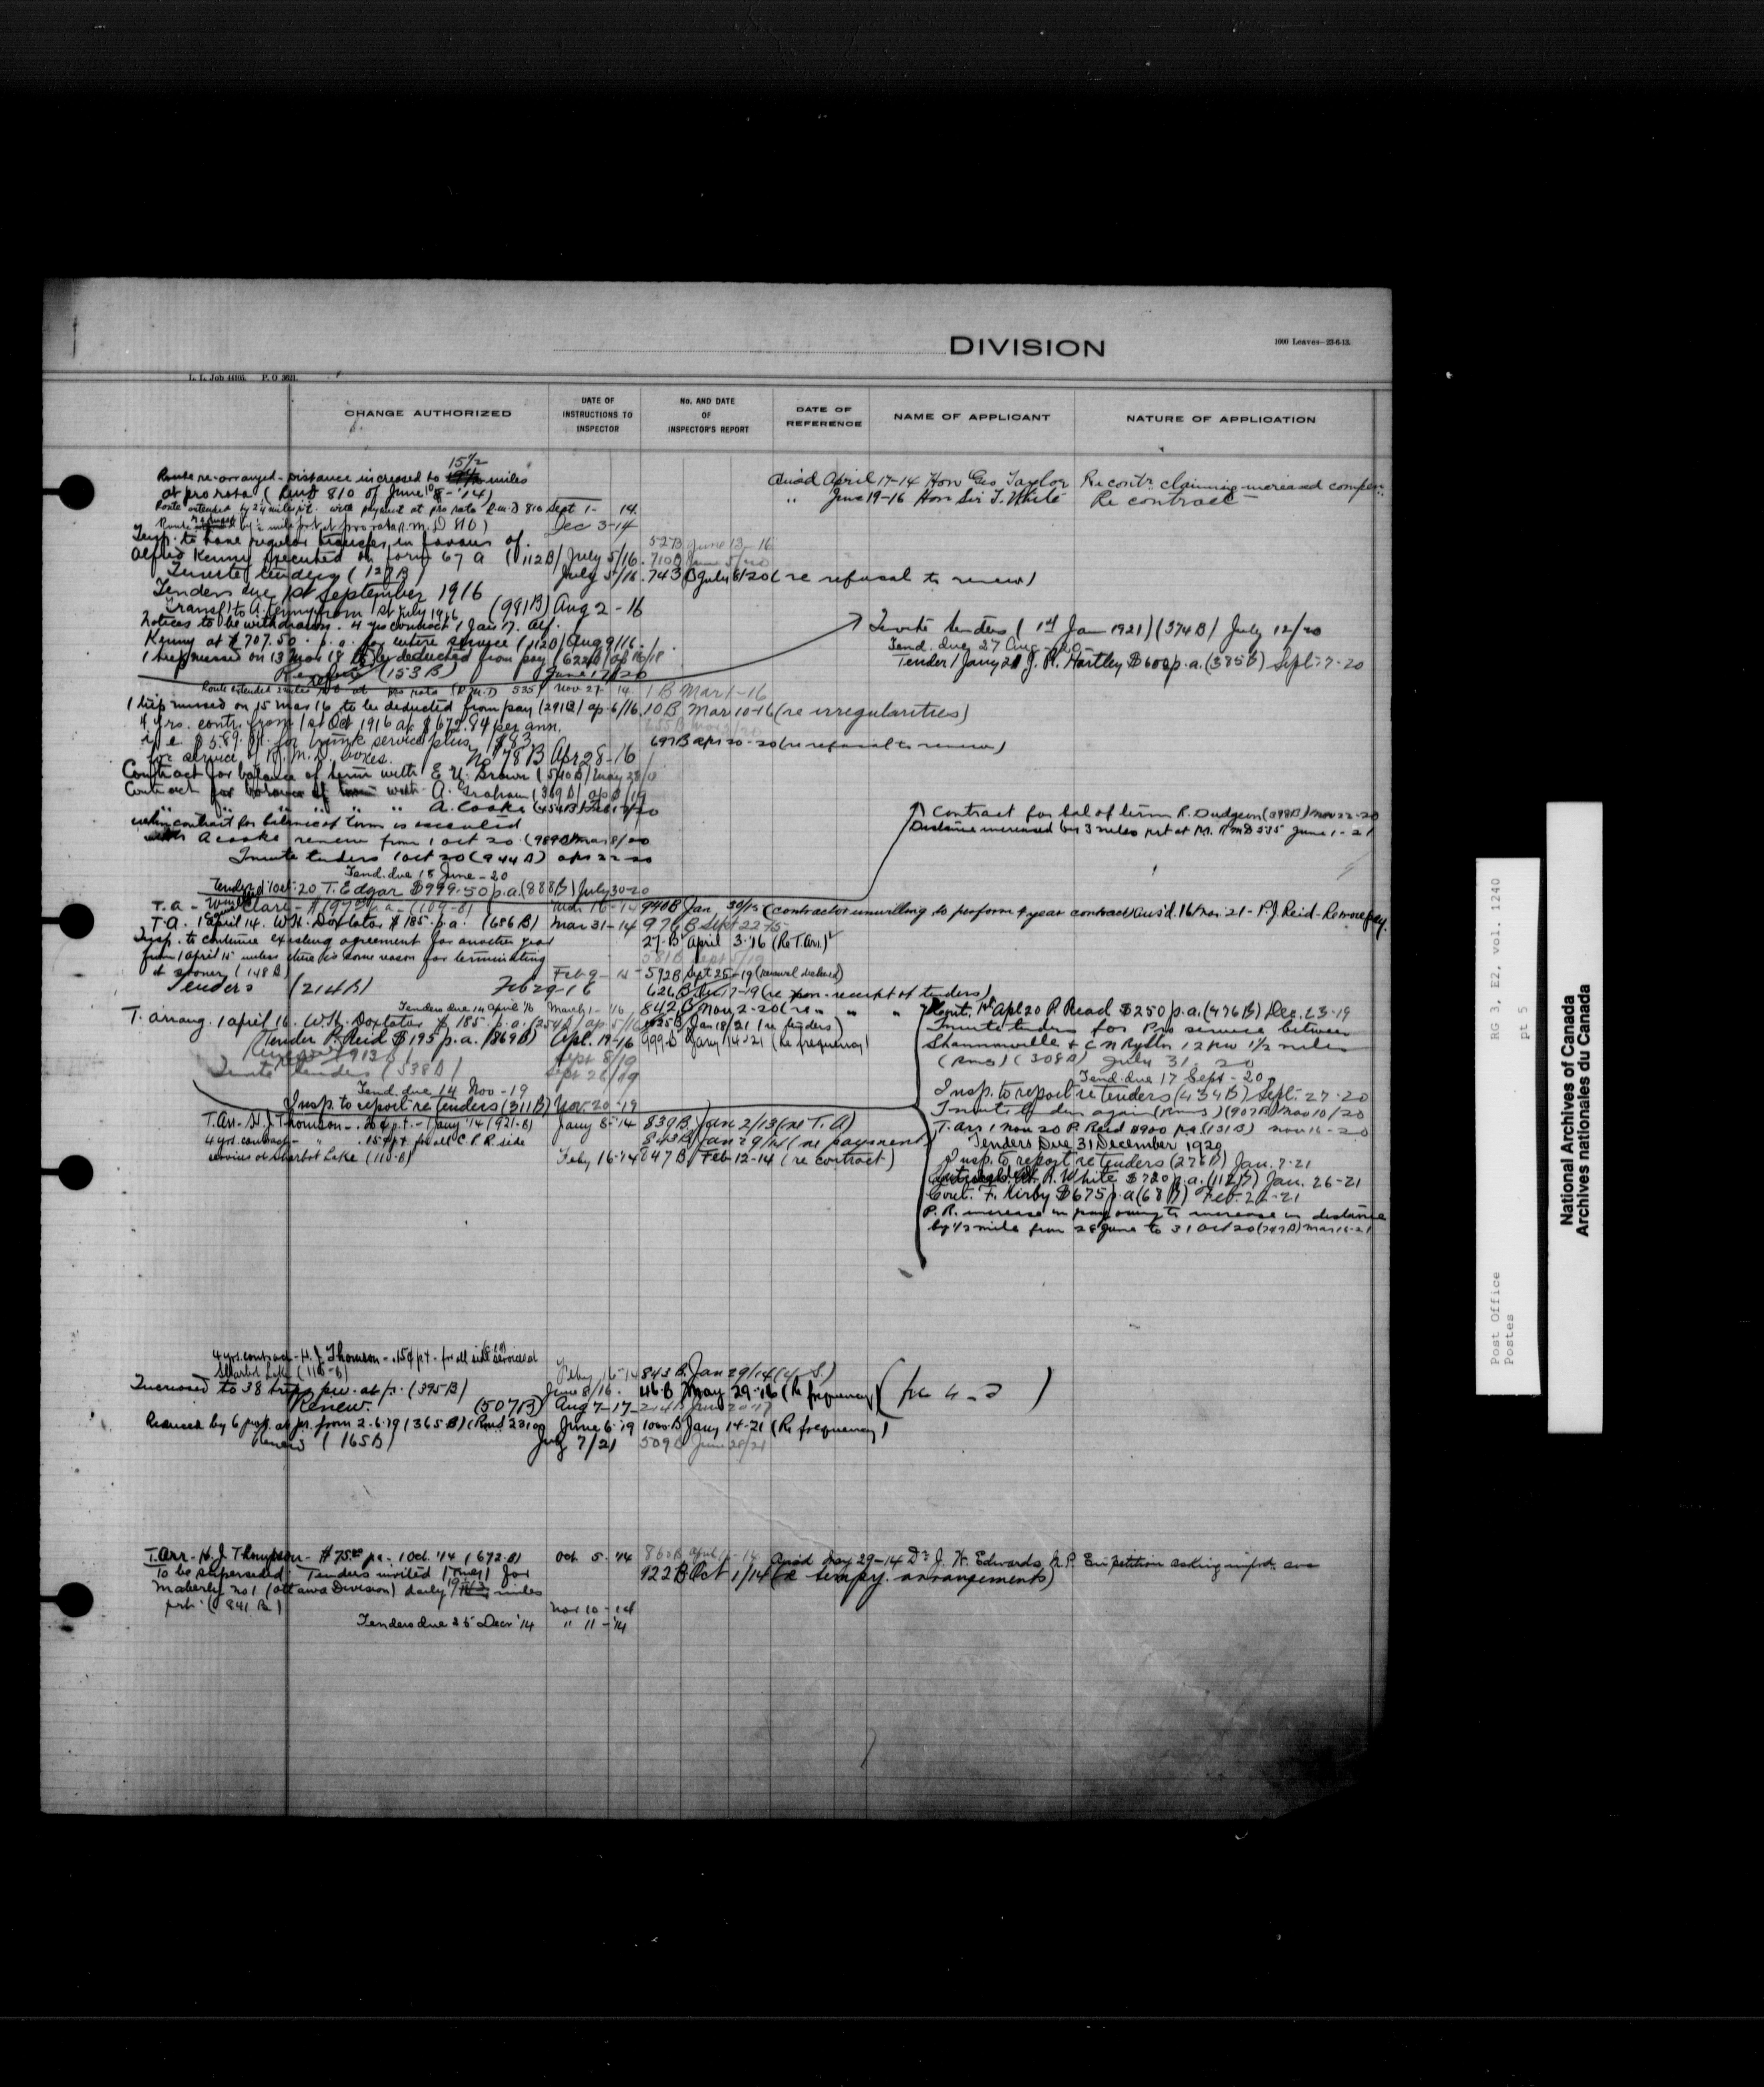 DIVISION
1000 Leaves—23-6-13.
L. L. Job 44105. P. O 3621.
CHANGE AUTHORIZED
DATE OF INSTRUCTIONS TO INSPECTOR
No. AND DATE OF INSPECTOR'S REPORT
DATE OF REFERENCE
NAME OF APPLICANT
NATURE OF APPLICATION
15 1/2
Route re-arranged - Distance increased to miles
at pro rata ( Rmd 810 of June 8 - '14)
Route extended by 2 1/4 miles p.t. with payment at pro rata R.m.D 810 Sept 1- 14.
Dec 3-14
Ans'd April 17-14 Hon Geo Taylor Re contr. claiming increased compen
" June 19-16 Hon Sir T. White Re contract
Insp. to have regular transfer in favour of
527B June 13 - 16
Alfred Kenny executed on form 67 A (112B) July 5/16. 710B June 5/20
Invite tenders (127B) July 5/16. 743 B July 8/20 (re refusal to renew)
Tenders due 1st September 1916
Transf. to A. Kenny from 1st July 1916 (991B) Aug 2-16
Notices to be withdrawn. 4 yrs contract 1 Jan 17. Alf.
Kenny at $707.50 p.a. for entire service (112B) Aug 9/16.
1 trip missed on 13 Mar 18 to be deducted from pay (622B) Ap 16/18
Renew (153B) June 17/20
Invite tenders (1st Jan 1921) (374B) July 12/20
Tend. due 27 Aug - 20 -
Tender 1 Jany 21 J. R. Hartley $600 p.a. (385B) Sept. 7-20
Route extended 2 miles at pro rata (R.M.D 535) Nov 27 14. 1B Mar 1-16
1 trip missed on 15 Mar 16 to be deducted from pay (291B) ap. 6/16. 10B Mar 10-16 (re irregularities)
4 yrs. contr. from 1st Oct 1916 at $672.84 per ann.
i.e. $589. for trunk service plus $83
697B Apr 20-20 (re refusal to renew)
for service of R. M. D. boxes. No 78B Apr 28-16
Contract for balance of term with E. U. Brown (540B) May 28/
Contract for balance of term with A. Graham (369B) Ap 8/19
" " " " " A. Cooke (454B) Feb 12/20
when contract for balance of term is executed
with A Cooke renew from 1 Oct 20 (989B) Mar 8/20
Invite tenders 1 Oct 20 (944B) Apr 22-20
Tend. due 18 June - 20
Tender 1 Oct. 20 T. Edgar $999.50 p.a. (888B) July 30-20
Contract for bal of term R. Dudgeon (398B) Nov 22-20
Distance increased by 3 miles prt at P.R. RMD 535 June 1-21
Mch 16-14 940B Jan 30/15 (contractor unwilling to perform 4 year contract) Ans'd. 16 Mar. 21 - P.J. Reid - Re more pay.
T.A. 1 April 14. W.H. Doxtator $185. p.a. (656B) Mar 31-14 976B Sept 22-15
Insp. to continue existing agreement for another year
27-B April 3-16 (Re T. Arr.)
from 1 April 15 unless there is some reason for terminating
581B Sept 5/19
it sooner (148B) Feb 9-15 592B Sept 25-19 (renewal declined)
Tenders (214B) Feb 29-16 626B Dec 17-19 (re non-receipt of tenders)
Tenders due 14 April 16 March 1-16 842B Nov 2-20 (re " " "
T. arrang. 1 April 16. W.H. Doxtator $185. p.a. (254B) Ap 5/16 925B Jan 18/21 (re tenders)
Tender P. Reid $195 p.a. (869B) Apl. 19-16 999B Jany 14-21 (Re frequency)
Renew (913B) Sept 8/19
Invite tenders (538B) Sept 26/19
Tend. due 14 Nov - 19
Insp. to report re tenders (311B) Nov 20-19
Cont. 1st Apl 20 P. Read $250 p.a. (476B) Dec. 23-19
Invite tenders for Pro service between
Shannonville & C N Rystn 12 pw 1 1/2 miles
(Rms) (308B) July 31. 20
Tend. due 17 Sept - 20
Insp. to report re tenders (434B) Sept. 27-20
Invite tenders again (Rms) (907B) Nov 10/20
T. Arr 1 Nov 20 P. Reid $900 pa (131B) Nov 16-20
Tenders Due 31 December 1920
Insp. to report re tenders (276B) Jan. 7-21
R. White $720 p.a. (112B) Jan. 26-21
Cont. F. Kirby $675 p.a (68B) Feb. 22-21
P. R. increase in pay owing to increase in distance
by 1/2 mile from 28 June to 31 Oct 20 (747B) Mar 16-21
T. Arr. H. J. Thomson - 20¢ p.t. - 1 Jany '14 (921-B) Jany 8-14 839B Jan 2/13 (re T. A)
4 yrs. contract - " .15¢ p.t for all C P R side 843B Jan 29/14 (re payment)
services at Sharbot Lake (110-B) Feby 16-14 847B Feb 12-14 (re contract)
4 yrs. contract - H. J. Thomson - .15¢ p.t - for all side services at
Sharbot Lake (110-B) Feby 16-14 843 B. Jan 29/14
Increased to 38 trips p.w. at p. (395B) June 8/16. 46.B May 29-16 (Re frequency)
Renew. (507B) Aug 7-17 - 214B June 20-17
Reduced by 6 p.w. at pr. from 2-6-19 (365B) (Rmd 23100 June 6-19 1000-B Jany 14-21 (Re frequency)
Renew (165B) July 7/21 509B June 28/21
T. Arr - H. J. Thompson - $75.00 pa - 1 Oct. '14 (672-B) Oct 5-'14 860B April 14
Ans'd May 29-14 Dr. J. W. Edwards M.P. En Petition asking
To be superseded. Tenders invited (Rms) for 922B Oct 1/14 (re tempy. arrangements)
Maberly no 1 (Ottawa Division) daily 19 miles
prt. (841 B.) Nov 10-14
Tenders due 25 Decr '14 " 11-'14
Post Office
Postes
RG 3, E2, vol. 1240
pt 5
National Archives of Canada
Archives nationales du Canada